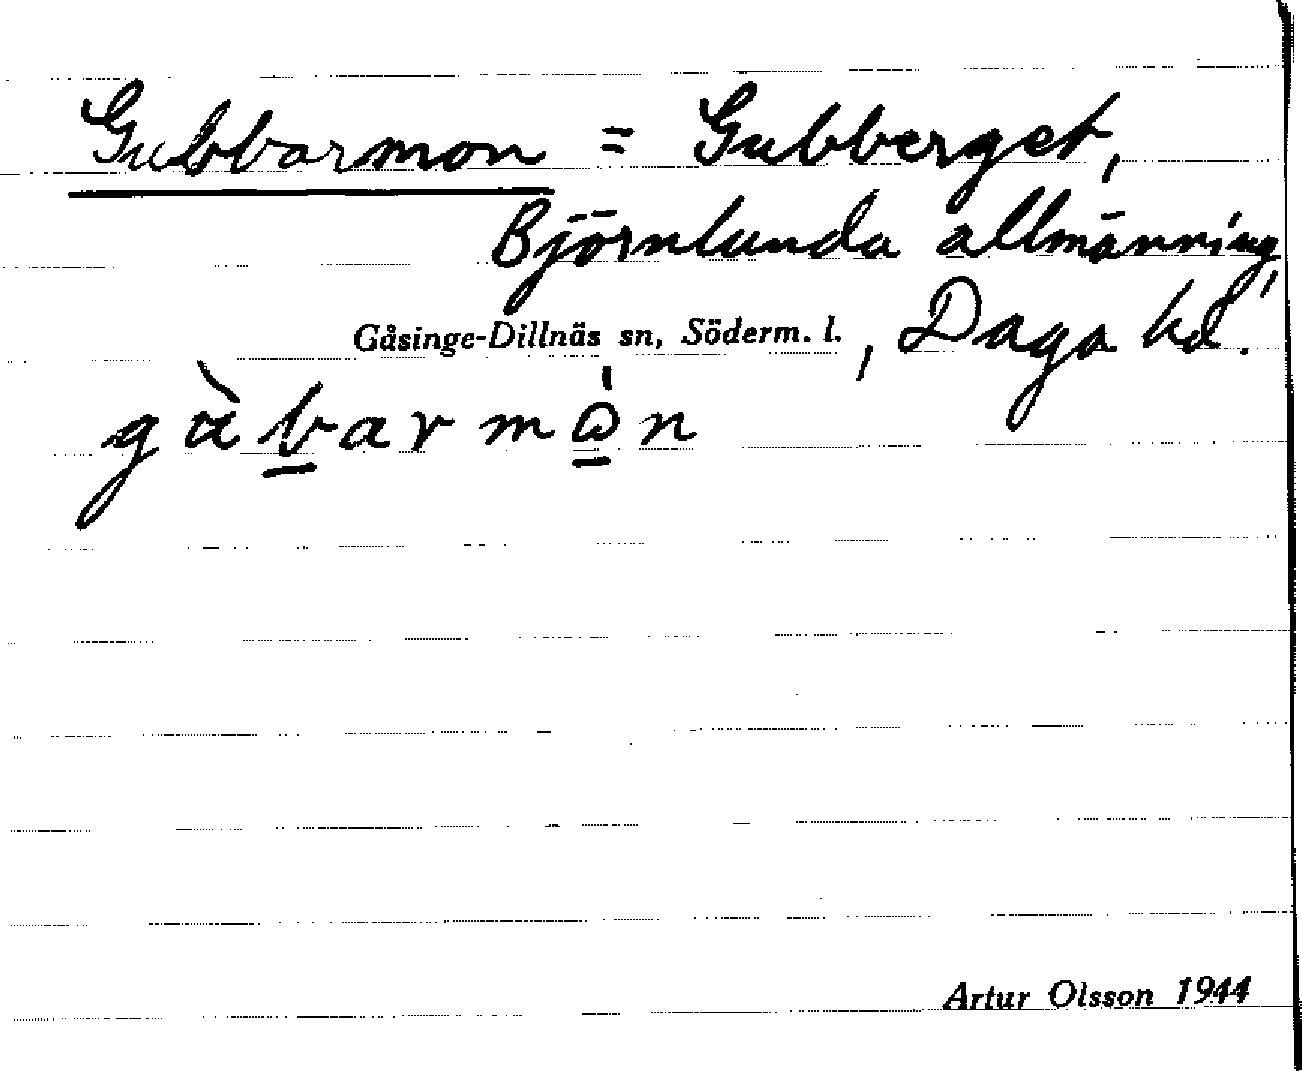 Gubbarmon = Gubberget,
Björnlunda allmänning,
Gåsinge-Dillnäs sn, Söderm. l., Daga hd.
gàbarmòn
Artur Olsson 1944